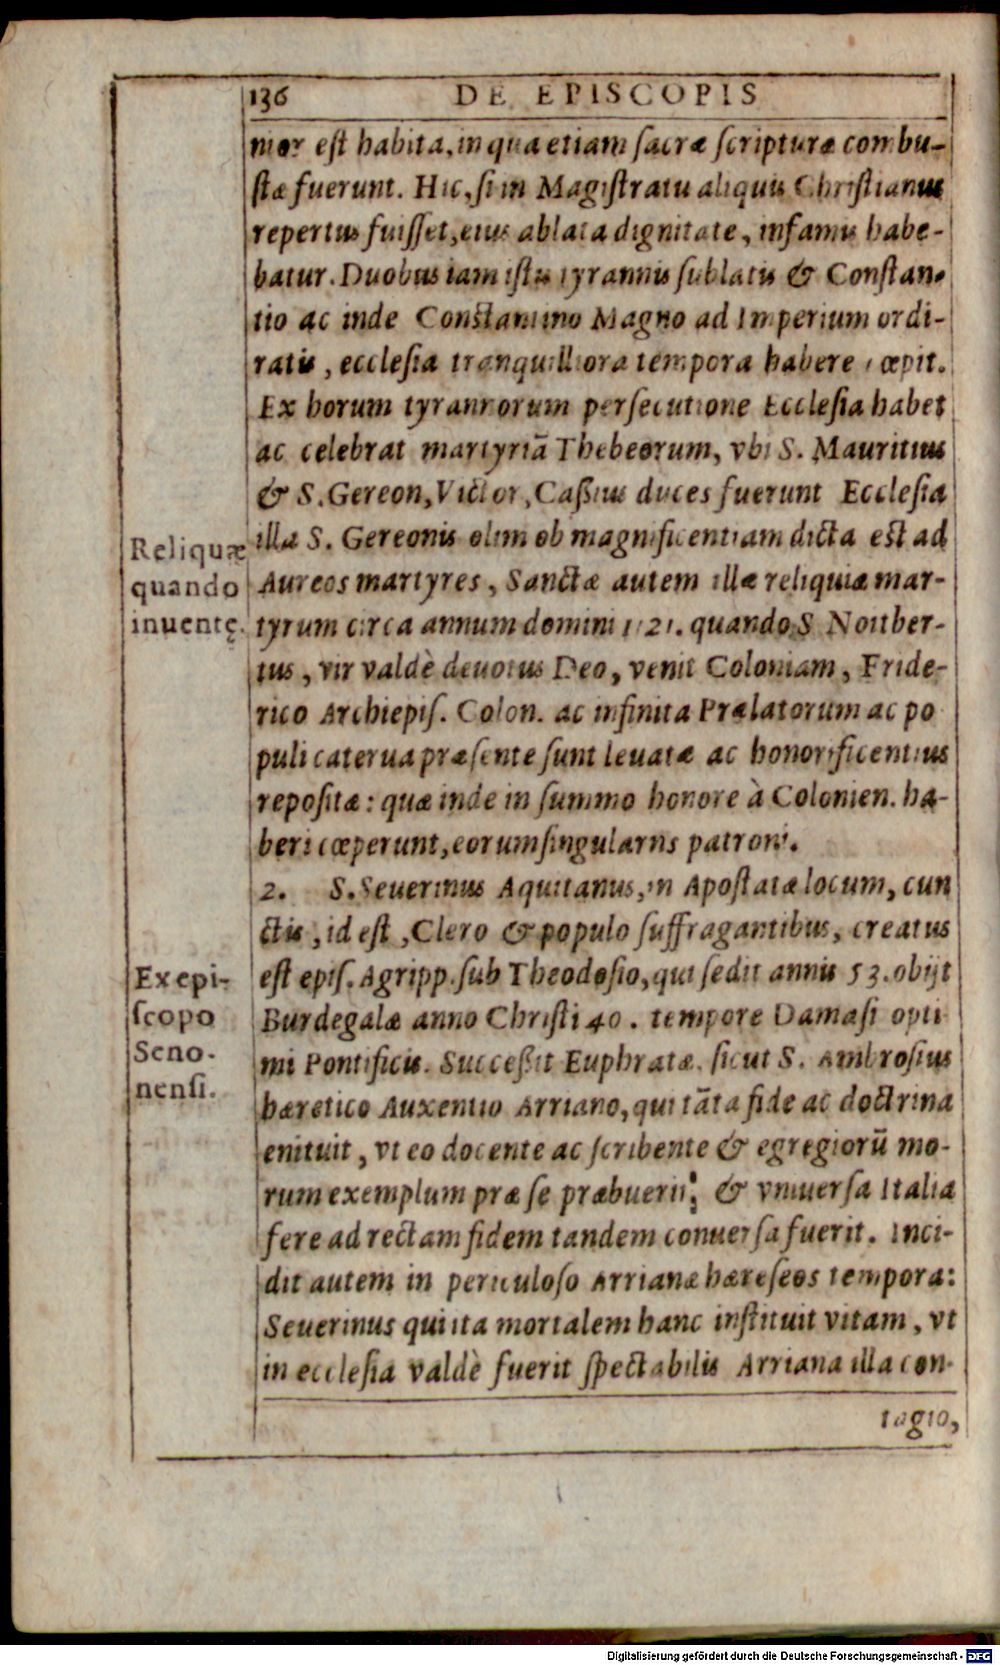 136 DE EPISCOPIS
mor est habita, in qua etiam sacræ scripturæ combu-
stæ fuerunt. Hic, si in Magistratu aliquis Christianus
repertus fuisset, eius ablata dignitate, infamis habe-
batur. Duobus iam istis tyrannis sublatis & Constan-
tio ac inde Constantino Magno ad Imperium ordi-
ratis, ecclesia tranquilliora tempora habere cœpit.
Ex horum tyrannorum persecutione Ecclesia habet
ac celebrat martyriā Thebeorum, vbi S. Mauritius
& S. Gereon, Victor, Cassius duces fuerunt Ecclesia
illa S. Gereonis olim ob magnificentiam dicta est ad
Aureos martyres, Sanctæ autem illæ reliquiæ mar-
tyrum circa annum domini 1121. quando S Nortber-
tus, vir valdè deuotus Deo, venit Coloniam, Fride-
rico Archiepis. Colon. ac infinita Prælatorum ac po
puli caterua præsente sunt leuatæ ac honorificentius
repositæ: quæ inde in summo honore à Colonien. ha-
beri cœperunt, eorum singularns patroni.
Reliquæ
quando
inuentę.
2. S. Seuerinus Aquitanus, in Apostatæ locum, cun
ctis, id est, Clero & populo suffragantibus, creatus
est epis. Agripp. sub Theodosio, qui sedit annis 53. obijt
Burdegalæ anno Christi 40. tempore Damasi opti
mi Pontificis. Successit Euphratæ, sicut S. Ambrosius
hæretico Auxentio Arriano, qui tāta fide ac doctrina
enituit, vt eo docente ac scribente & egregiorū mo-
rum exemplum præ se præbuerit; & vniuersa Italia
fere ad rectam fidem tandem conuersa fuerit. Inci-
dit autem in periculoso Arrianæ hæreseos tempora:
Seuerinus qui ita mortalem hanc instituit vitam, vt
in ecclesia valdè fuerit spectabilis Arriana illa con-
tagio,
Ex epi-
scopo
Seno-
nensi.
Digitalisierung gefördert durch die Deutsche Forschungsgemeinschaft - DFG